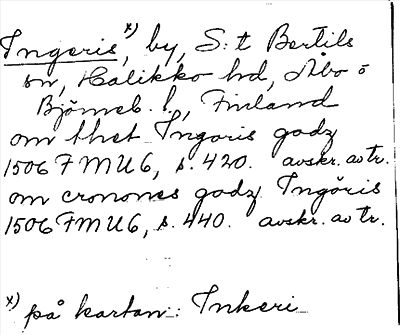 Ingeris, x) by, S:t Bertils
sn, Halikko hd, Åbo o
Björneb. l., Finland
om thet Ingoris godz
1506 FMU6, s. 420. avskr. av tr.
om cronones godz Ingöris
1506 FMU6, s. 440. avskr. av tr.
x) på kartan: Inkeri